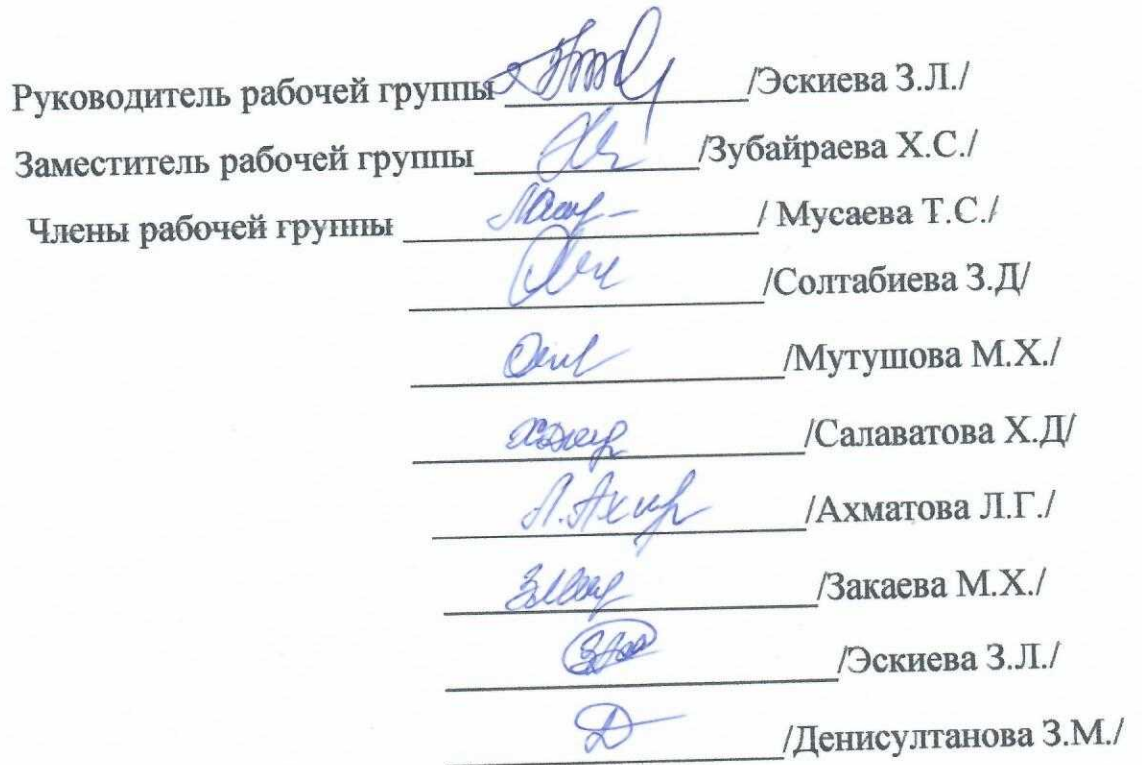 Руководитель рабочей группы /Эскиева З.Л./
Заместитель рабочей группы /Зубайраева Х.С./
Члены рабочей группы / Мусаева Т.С./
/Солтабиева З.Д/
/Мутушова М.Х./
/Салаватова Х.Д/
Л. /Ахматова Л.Г./
/Закаева М.Х./
/Эскиева З.Л./
/Денисултанова З.М./